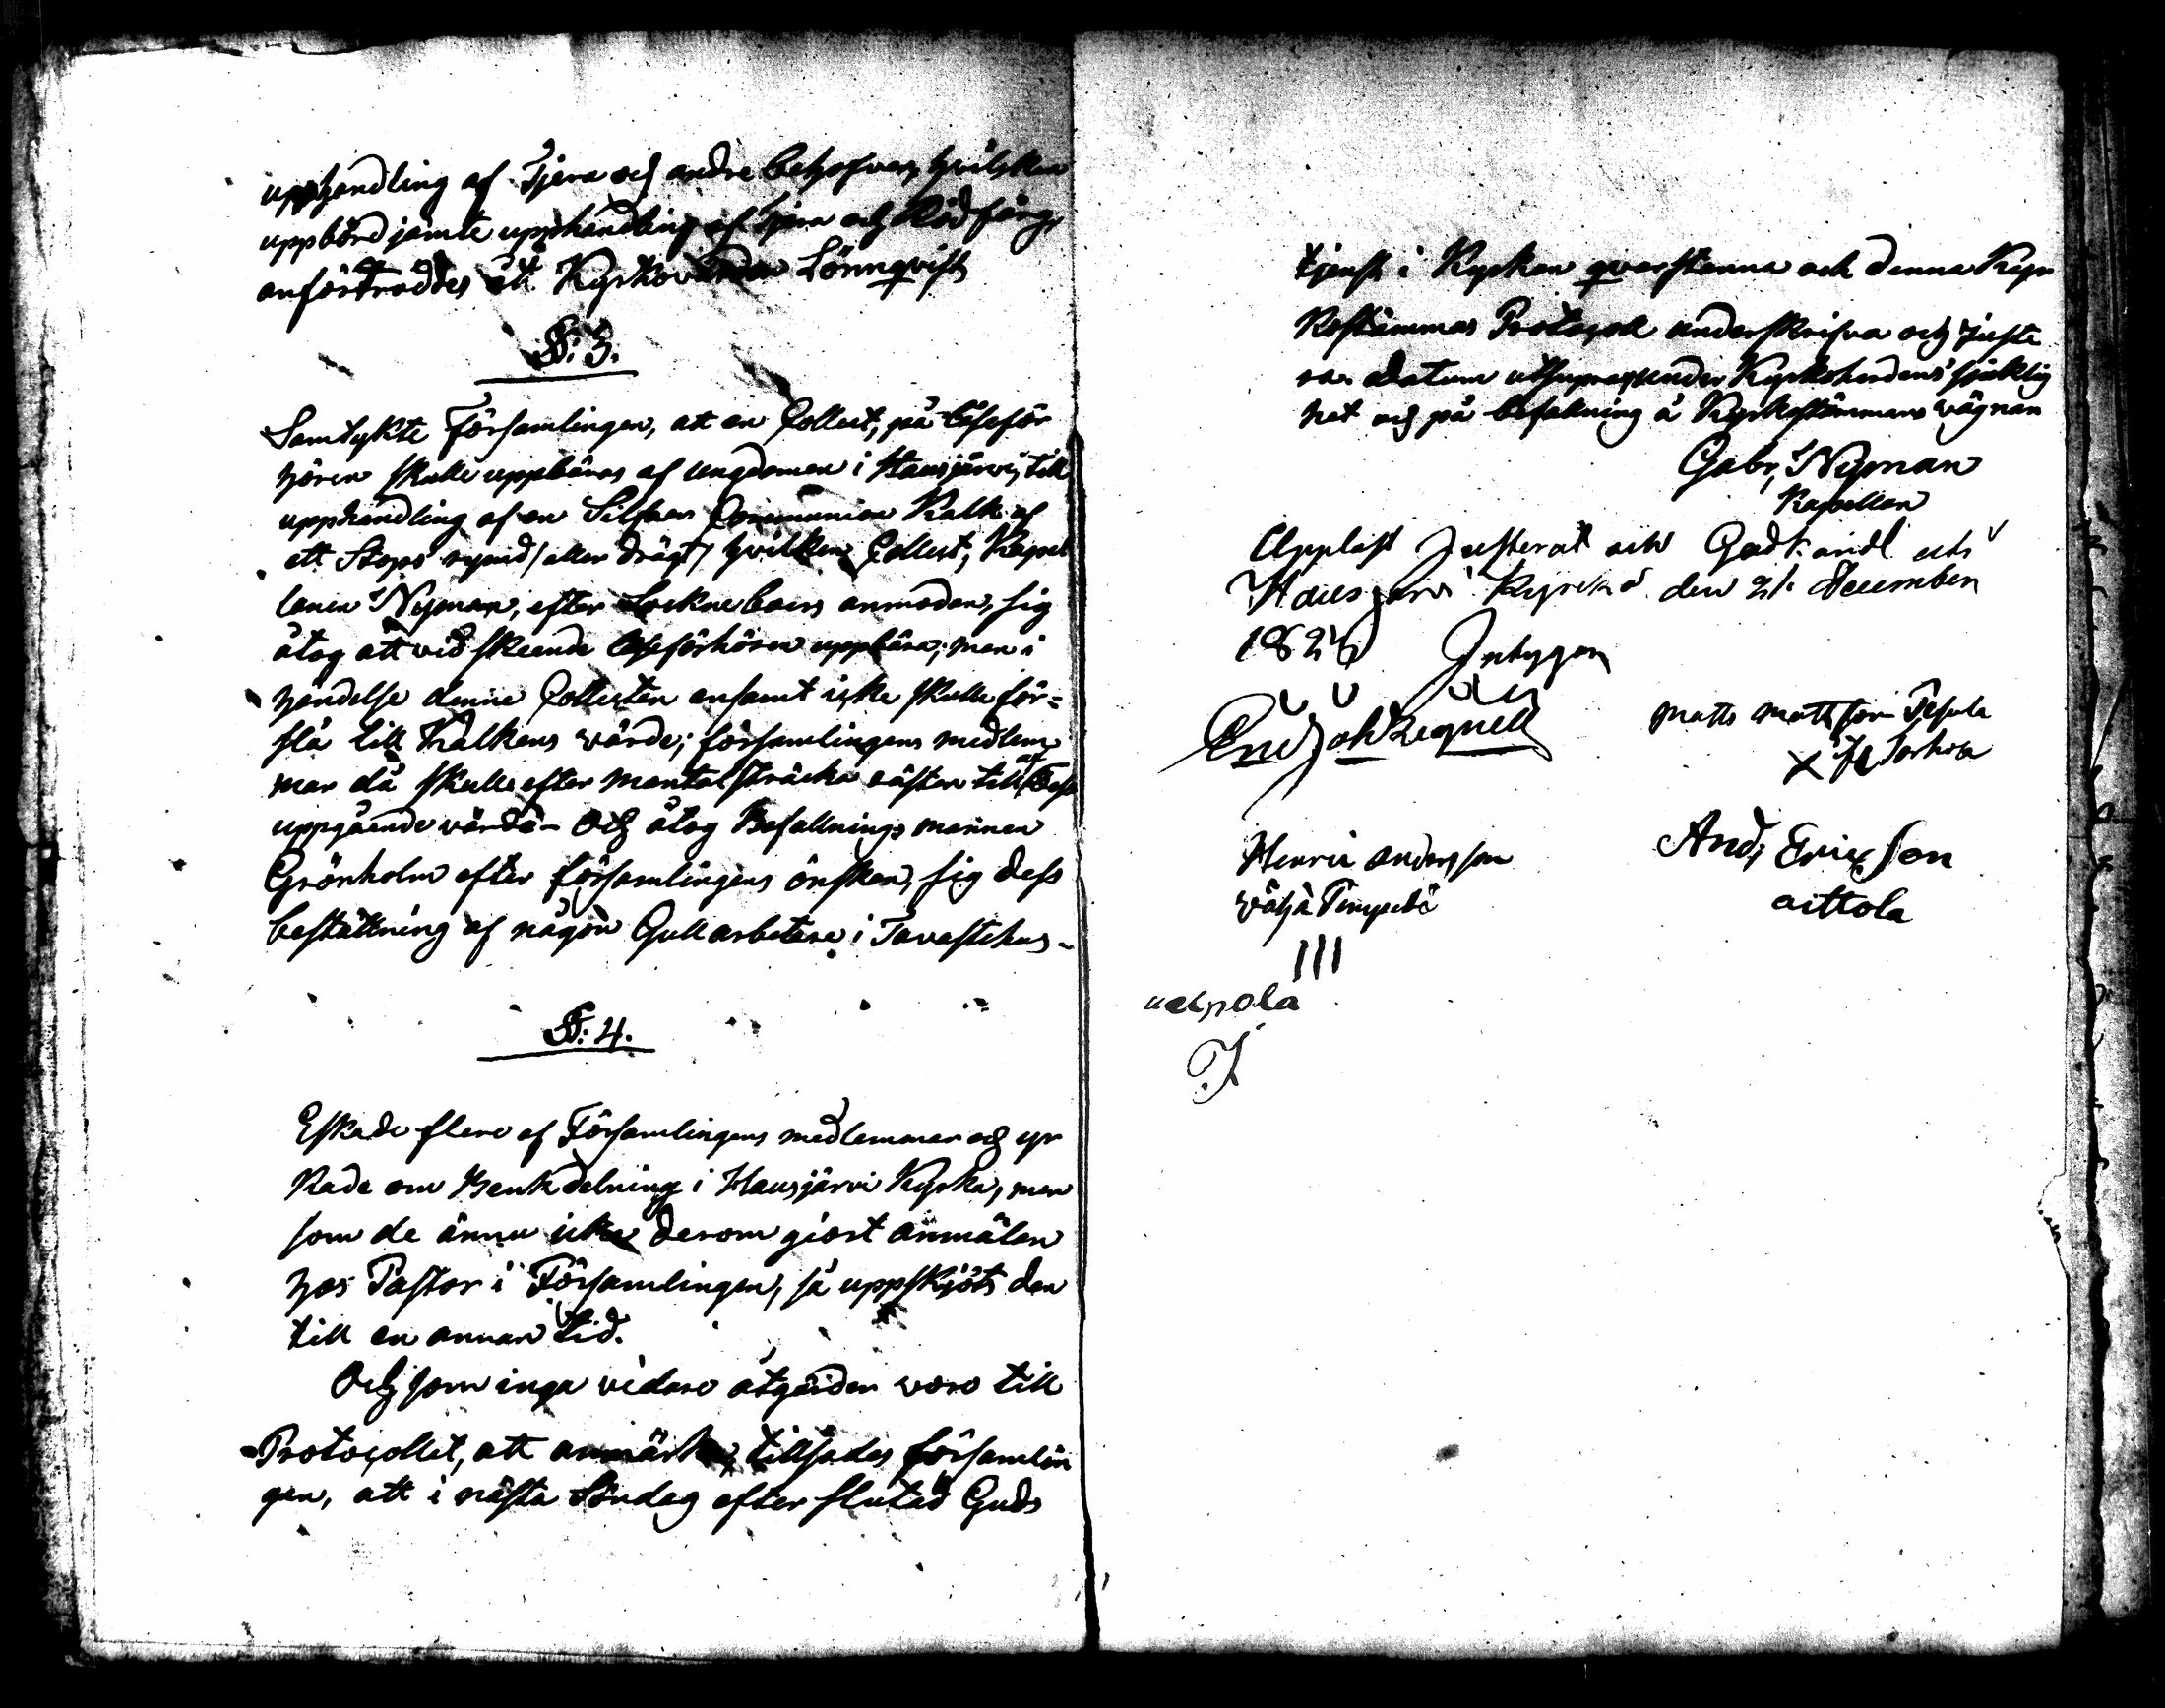 upphandling af Tjera och andre behofver, hvilken
uppbörd jemte upphandling af Tjera och Rödfärg,
anförtroddes åt Kyrkovärden Lönnqvist,
§: 3.
Samtykte Församlingen, att en Collect, på Läseför
hören skulle uppbäras af ungdomen i Hausjärvi, till
upphandling af en Silfver Communion Kalk af
ett Stops rymd /eller drägt/ hvilken Collect, Kapel
lanen Nyman, efter Sockneboers anmodan, sig
åtog att vid skeende Läseförhören uppbära; men i
händelse denne Collecten ensamt icke skulle för=
slå till Kalkens värde; församlingens medlem
mar då skulle efter Mantal sträcka resten till
uppgående värde - Och åtog Befallningsmannen
Grönholm efter församlingens önskan, sig dess
beställning af någon Gullarbetare i Tavastehus -
§: 4.
Eskade flere af Församlingens medlemmar och yr
kade om Benkdelning i Hausjärvi Kyrka, men
som de ännu icke derom giort anmälan
hos Pastor i Församlingen, så uppskjöts den
till en annan tid.
Och som inga vidare åtgärder voro till
Protocollet, att anmärka, tillsades församlin
gen, att i nästa Söndag efter slutad Guds
tjenst i Kyrkan qvarstanna och denna Kyr
kostämmas Protocoll underskrifva och juste
ra. Datum utsupra, under Kyrkoherdens sjuklig
het och på befallning å Kyrkostämmans vägnar
Gabr. Nyman
Kapellan
Uppläst Justerat och Godkändt uti
Hausjärvi Kyrcka den 21 December
182 Intygar
Matts Mattsson
X
Henric Andersson
And. Ericsson
aittola
III